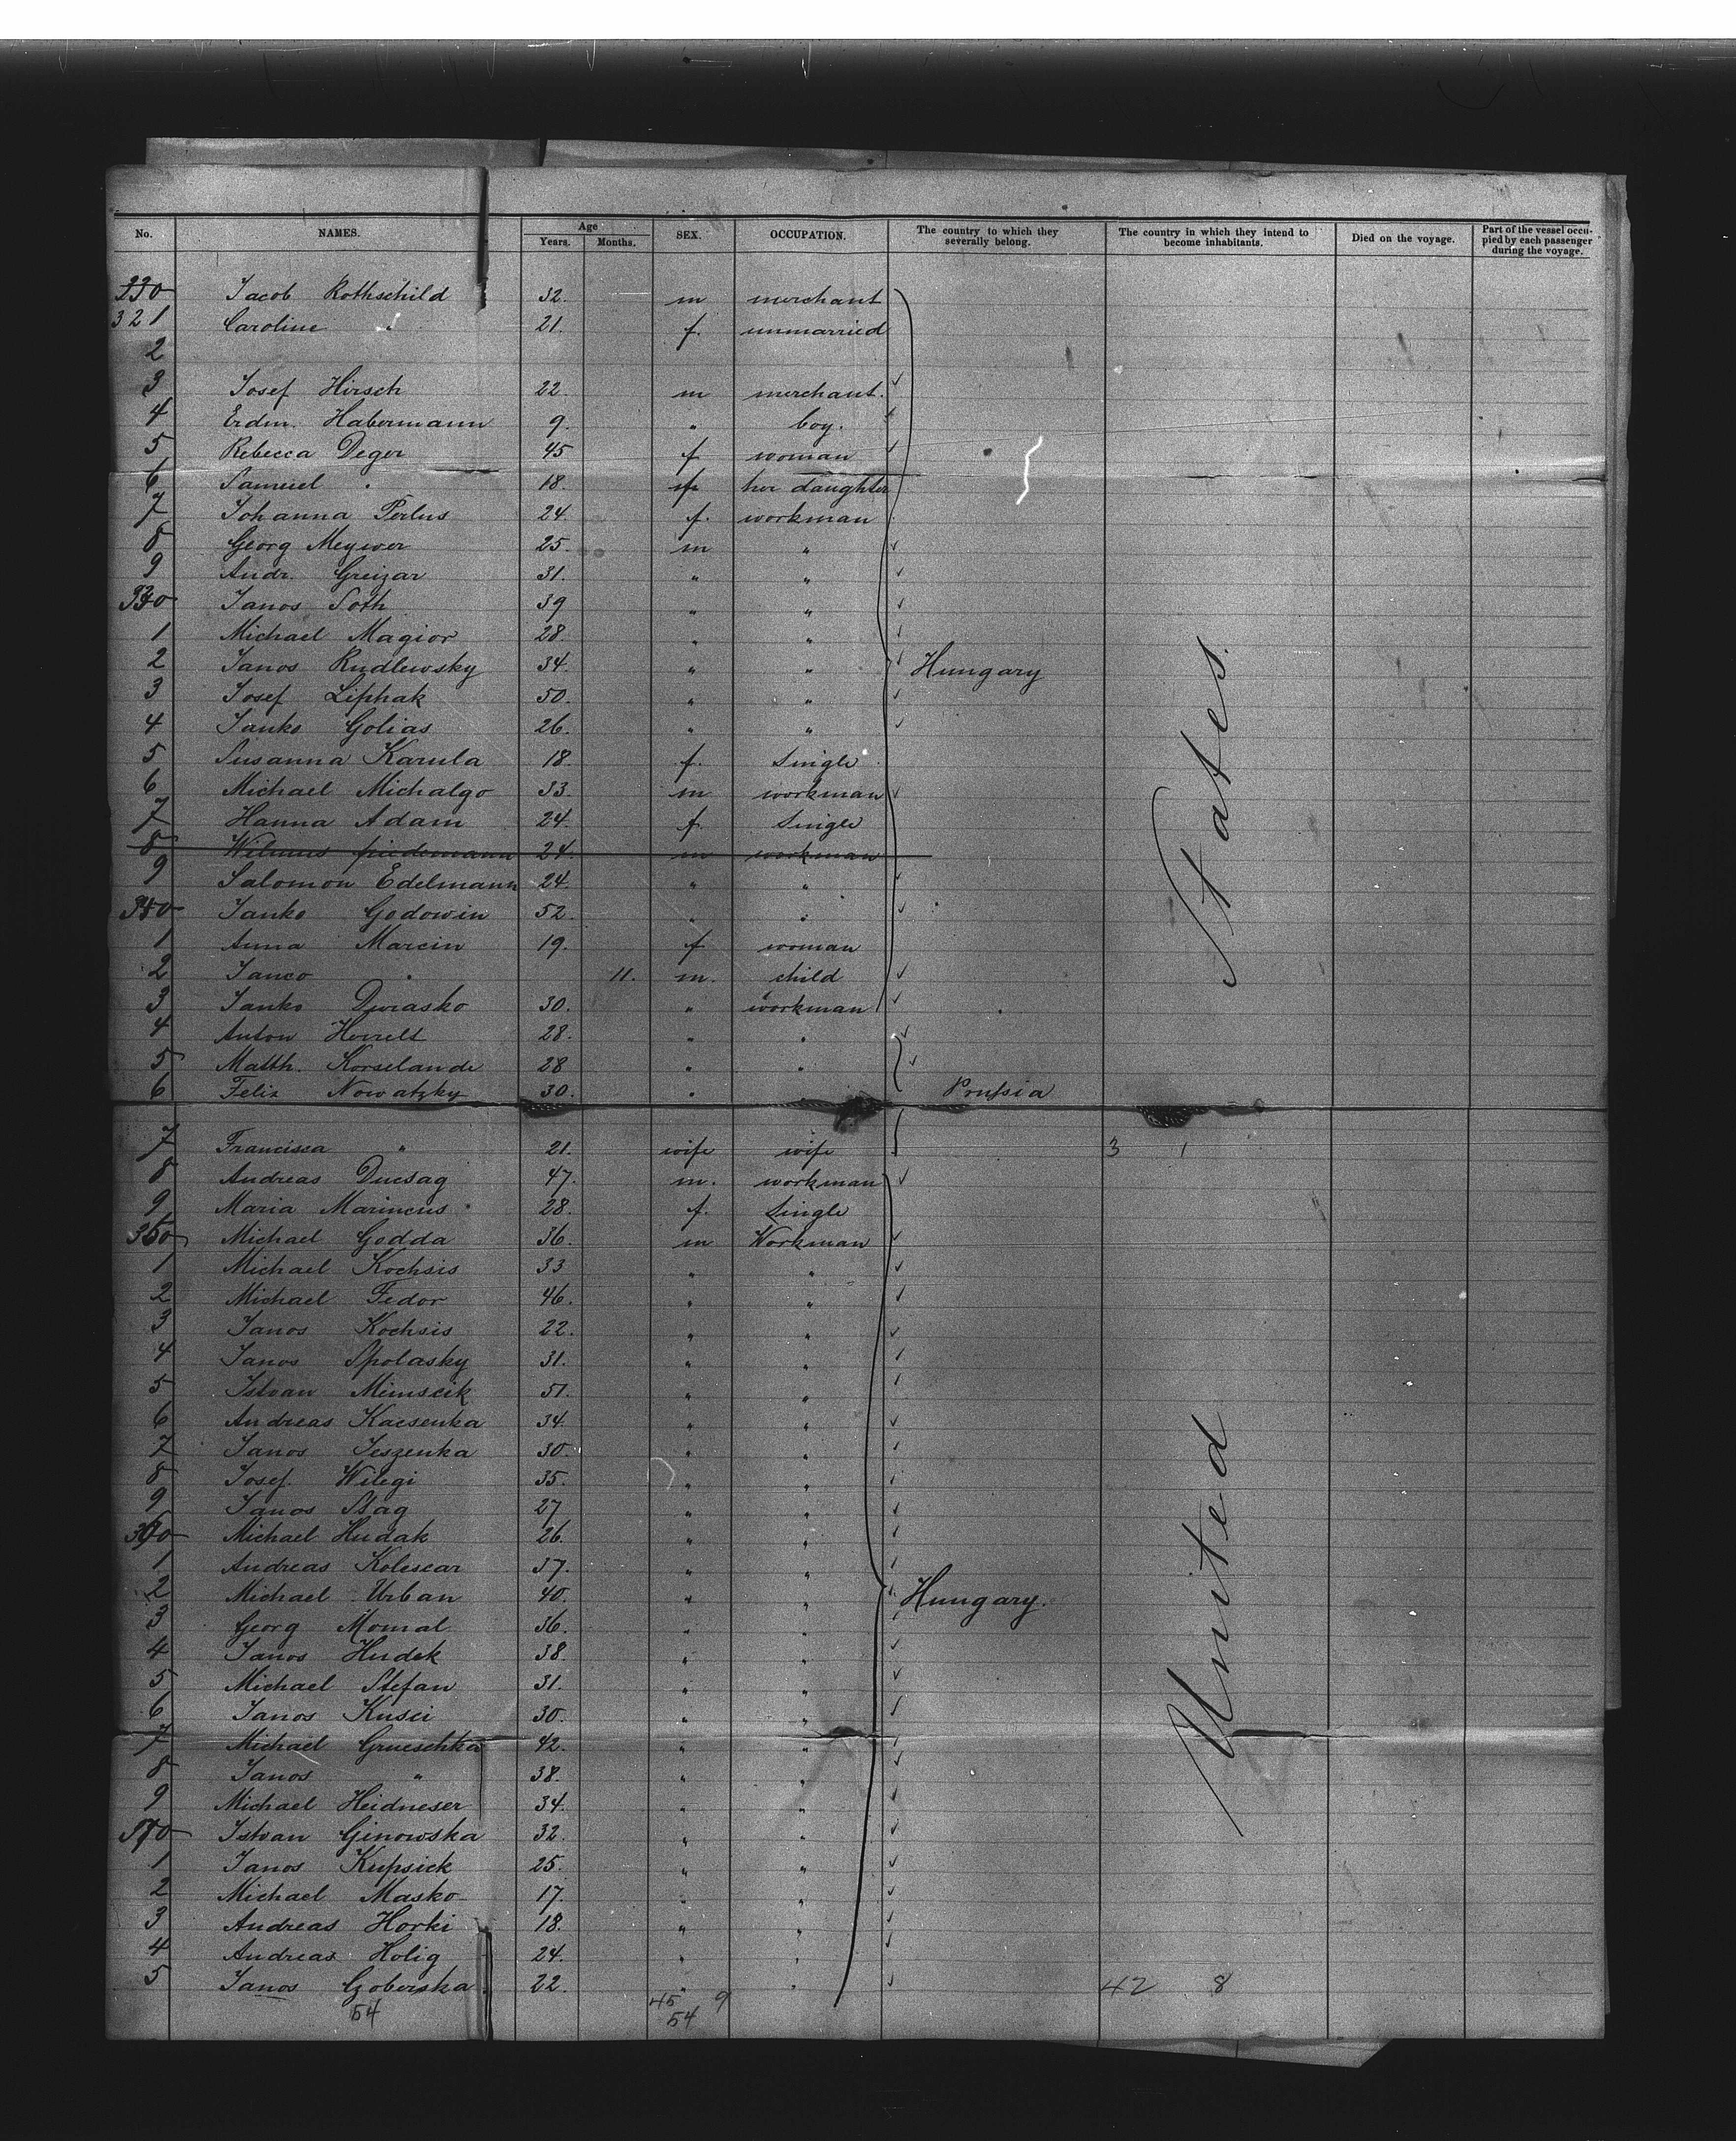 No. NAMES. Age Years. Months. SEX. OCCUPATION. The country to which they severally belong. The country in which they intend to become inhabitants. Died on the voyage. Part of the vessel occupied by each passenger during the voyage.
Jacob Rothschild 32. m merchant
321 Caroline " 21. f. unmarried
2
3 Josef Hirsch 22. m merchant.
4 Erdm. Habermann 9. " boy.
5 Rebecca Deger 45 f woman
6 Samuel " 18. her daughter
7 Johanna Perlus 24. f. workman
8 Georg Meywer 25. m "
9 Andr. Greizar 31. " "
330 Janos Soth 39 " "
1 Michael Magior 28. " "
2 Janos Rudlewsky 34. " " Hungary
3 Josef Liphak 50. " "
4 Janko Golias 26. " "
5 Susanna Karula 18. f. Single
6 Michael Michalgo 33 m workman
7 Hanna Adam 24. f Single
8 friedemann 24. m workman
9 Salomon Edelmann 24. " "
340 Janko Godowin 52. " "
1 Anna Marcin 19. f woman
2 Janco " 11. m. child
3 Janko Durasko 30. " workman
4 Anton 28. " "
5 Matth. Korselande 28 " "
6 Felix Nowatzky 30. " " Prussia
7 Francisca " 21. wife wife 3 1
8 Andreas Ducsag 47. m. workman
9 Maria Marincus 28. f. Single
350 Michael Godda 36. m Workman
1 Michael Kochsis 33 " "
2 Michael Fedor 46. " "
3 Janos Kochsis 22. " "
4 Janos Spolasky 31. " "
5 Istvan Mimscik 51. " "
6 Andreas Kacsenka 34. " "
7 Janos Jeszenka 30. " "
8 Josef Wilegi 35. " "
9 Janos Stag 27 " "
360 Michael Hudak 26. " "
1 Andreas Kolescar 37. " "
2 Michael Urban 40. " " Hungary.
3 Georg Momal 36. " "
4 Janos Hudek 38. " "
5 Michael Stefan 31. " "
6 Janos Kusci 30. " "
7 Michael Grueschka 42. " "
8 Janos " 38. " "
9 Michael Heidneser 34. " "
370 Istvan Ginowska 32. " "
1 Janos Kupsick 25. " "
2 Michael Masko 17. " "
3 Andreas Horki 18. " "
4 Andreas Holig 24. " "
5 Janos Czoberska 22. " " 42 8
54 45 9
54
United States.